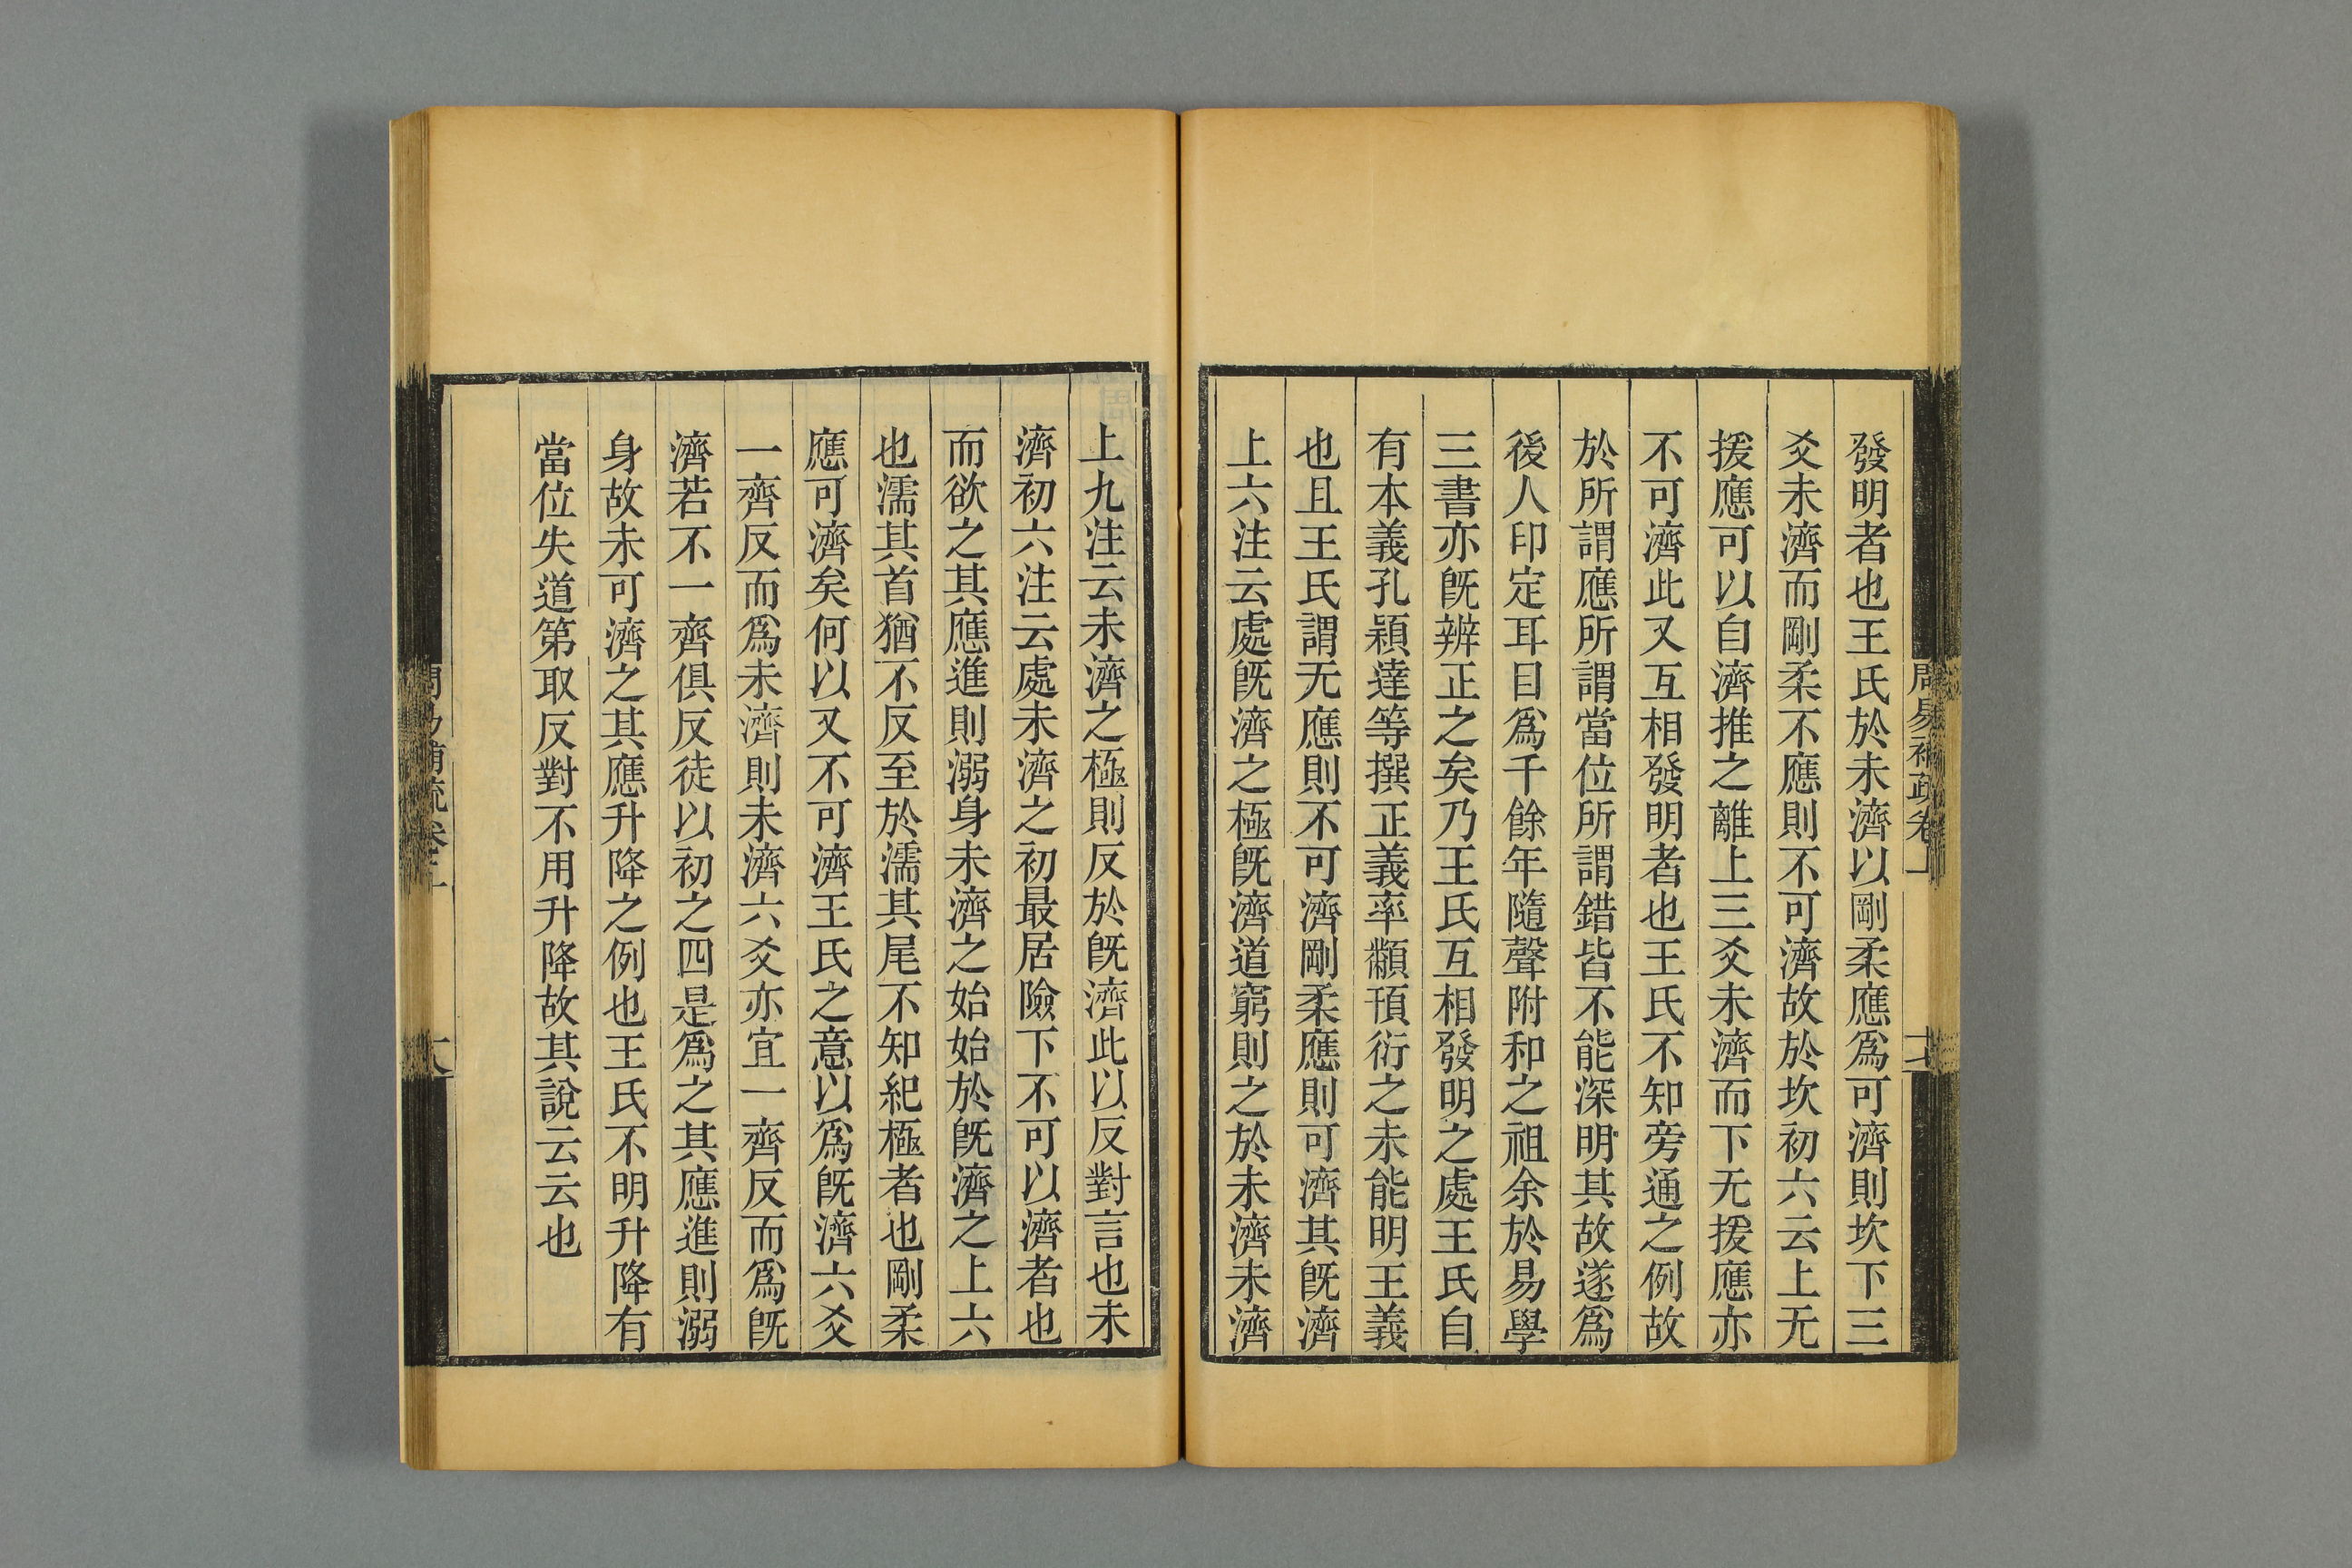 發明者也王氏於未濟以剛柔應爲可濟則坎下三
爻未濟而剛柔不應則不可濟故於坎初六云上无
援應可以自濟推之離上三爻未濟而下无援應亦
不可濟此又互相發明者也王氏不知旁通之例故
於所謂應所謂當位所謂錯皆不能深明其故遂爲
後人印定耳目爲千餘年隨聲附和之祖余於易學
三書亦旣辨正之矣乃王氏互相發明之處王氏自
有本義孔穎達等撰正義率顢頇衍之未能明王義
也且王氏謂无應則不可濟剛柔應則可濟其旣濟
上六注云處旣濟之極旣濟道窮則之於未濟未濟
上九注云未濟之極則反於旣濟此以反對言也未
濟初六注云處未濟之初最居險下不可以濟者也
而欲之其應進則溺身未濟之始始於旣濟之上六
也濡其首猶不反至於濡其尾不知紀極者也剛柔
應可濟矣何以又不可濟王氏之意以爲旣濟六爻
一齊反而爲未濟則未濟六爻亦宜一齊反而爲旣
濟若不一齊俱反徒以初之四是爲之其應進則溺
身故未可濟之其應升降之例也王氏不明升降有
當位失道第取反對不用升降故其說云云也